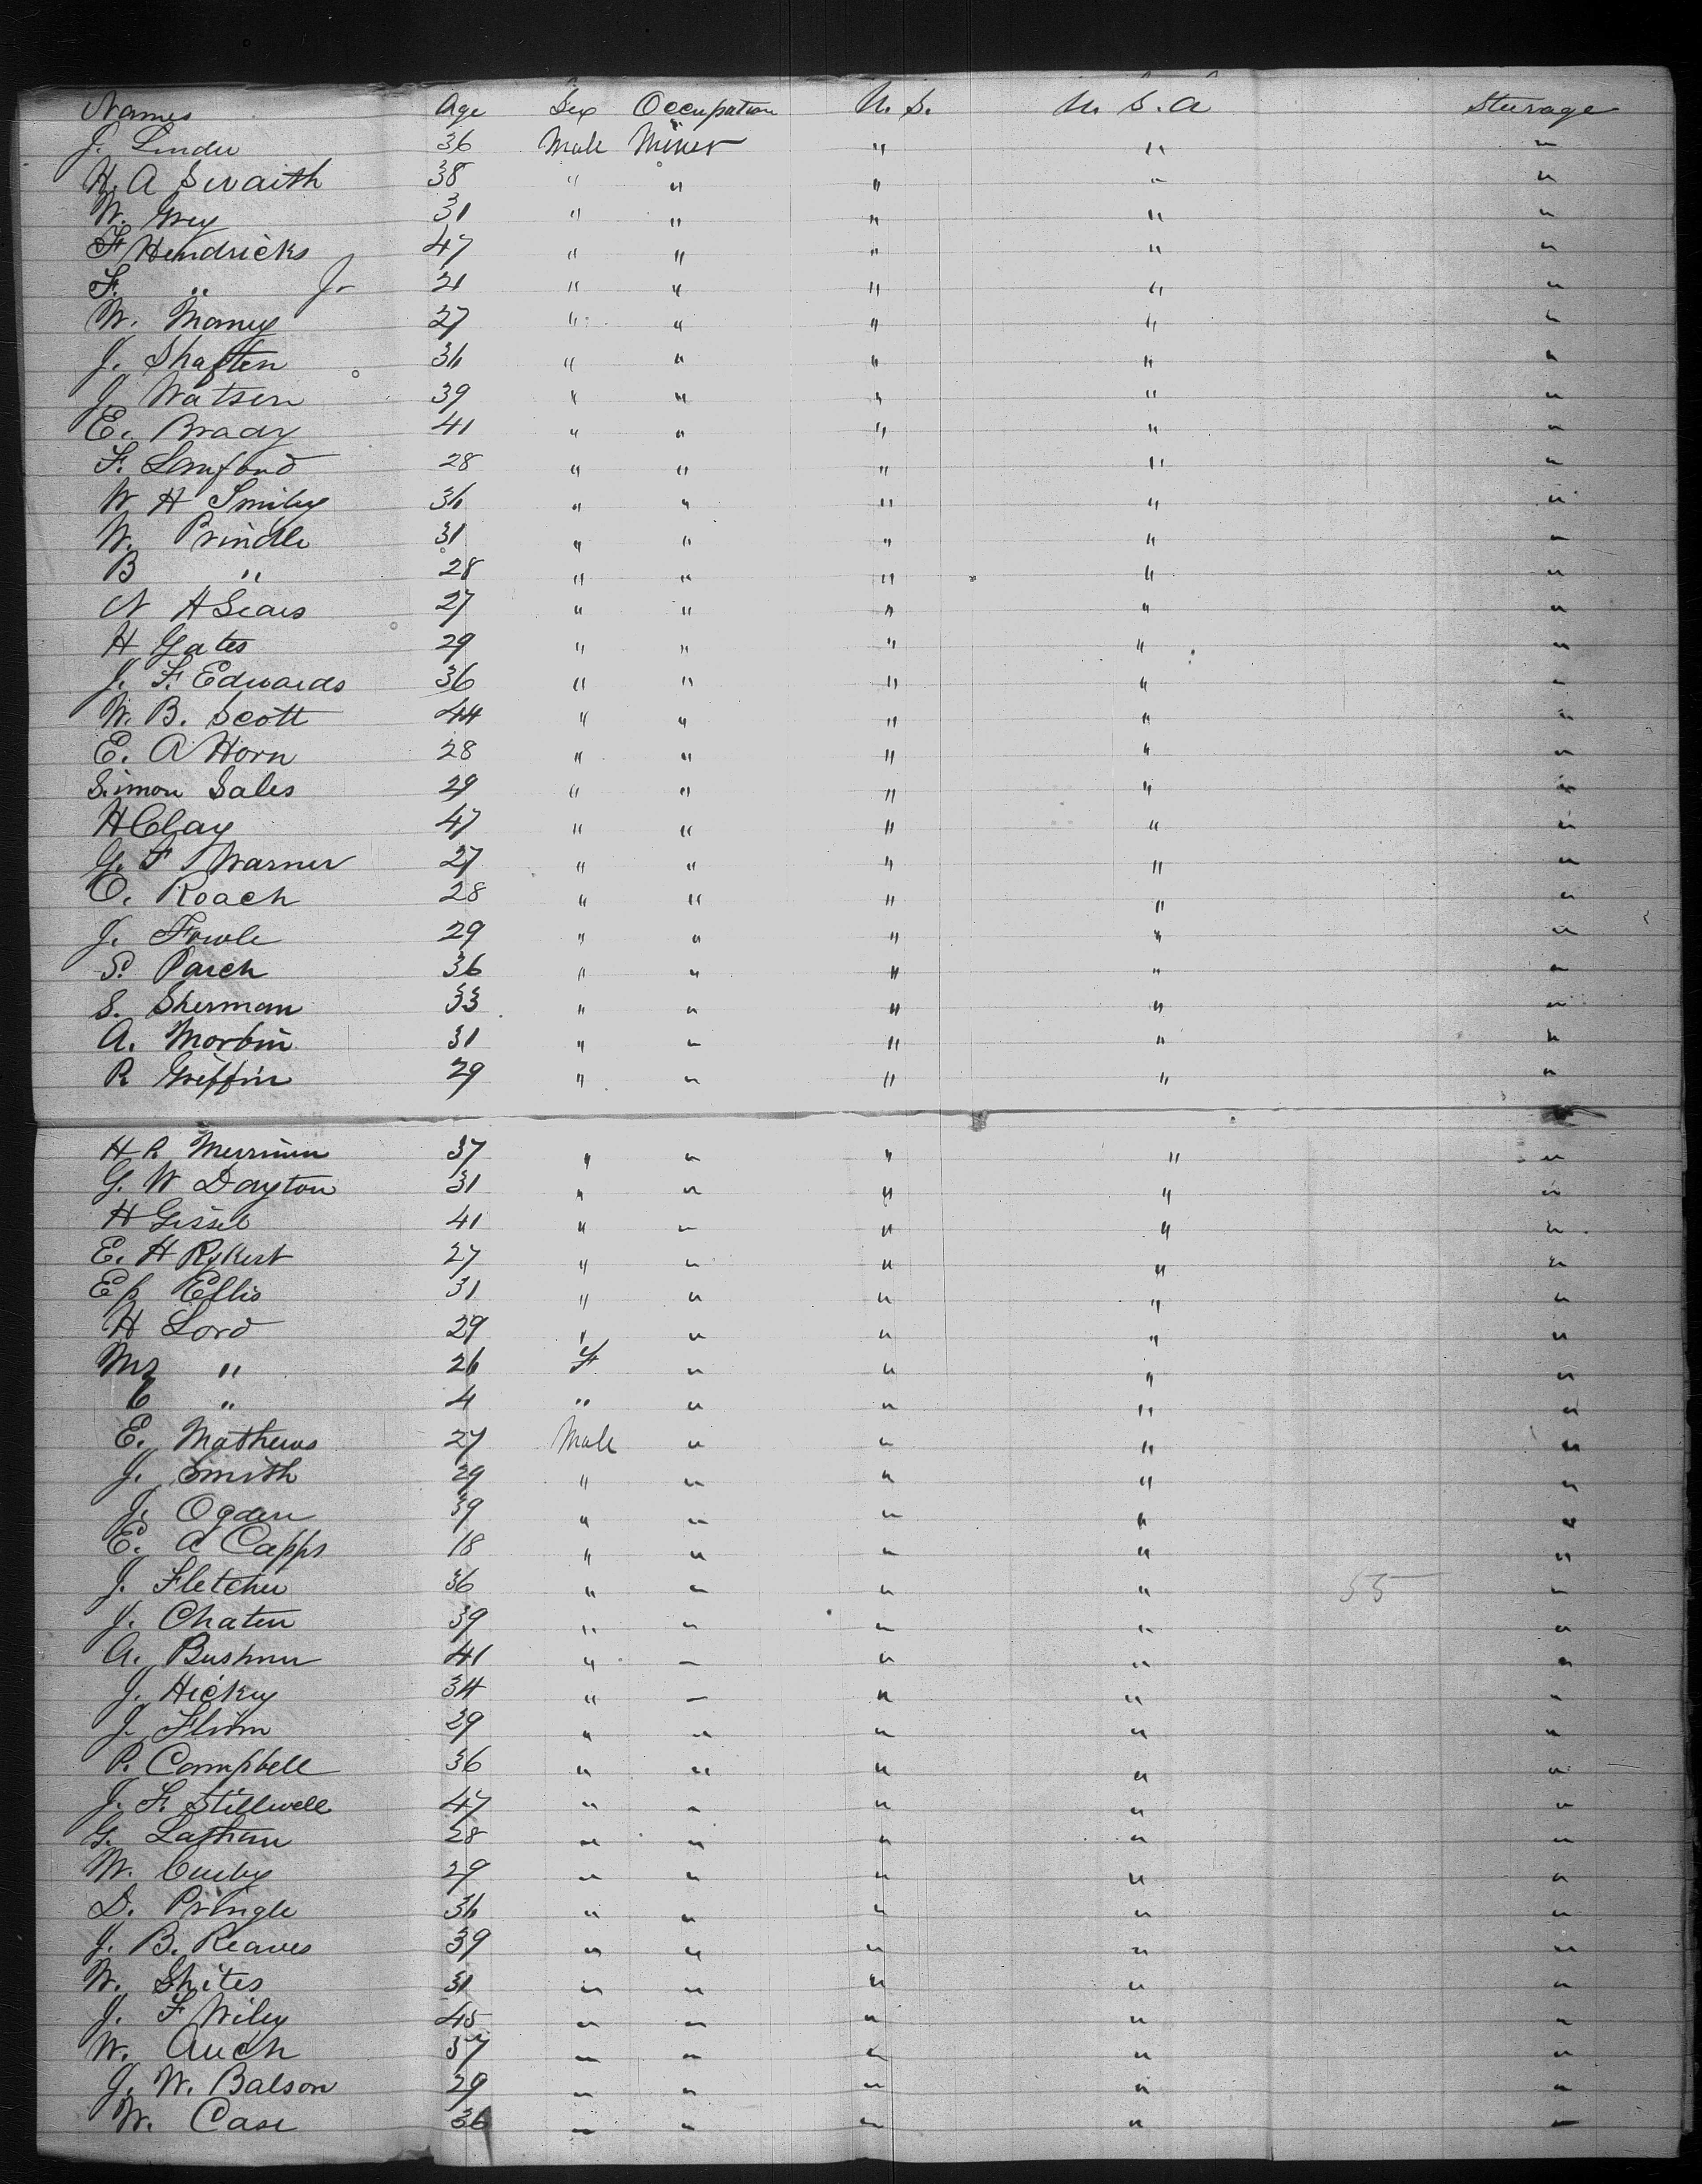 Names Age Sex Occupation U. S. U. S. A Steerage
J. Linder 36 Male Miner " " "
H. A Swaith 38 " " " " "
W. Grey 31 " " " " "
F Hendricks 47 " " " " "
F. " Jr 21 " " " " "
W. Maney 27 " " " " "
J. Shaften 36 " " " " "
J. Watson 39 " " " " "
E. Brady 41 " " " " "
F. Lanford 28 " " " " "
W H Smiley 36 " " " " "
W. Prindle 31 " " " " "
B " 28 " " " " "
N H Sears 27 " " " " "
H Gates 29 " " " " "
J. F. Edwards 36 " " " " "
W. B. Scott 44 " " " " "
E. A Horn 28 " " " " "
Simon Sales 29 " " " " "
H Clay 47 " " " " "
G. F Warner 27 " " " " "
O. Roach 28 " " " " "
J. Fowle 29 " " " " "
S. Parch 36 " " " " "
S. Sherman 33 " " " " "
A. Morbin 31 " " " " "
R Griffin 29 " " " " "
H P. Merrimen 37 " " " " "
G. W Dayton 31 " " " " "
H Gissel 41 " " " " "
E. H Rykert 27 " " " " "
Ep Ellis 31 " " " " "
H Lord 29 " " " " "
Mrs " 26 F " " " "
C " 4 " " " " "
E. Mathews 27 Male " " " "
J. Smith 29 " " " " "
J. Ogden 39 " " " " "
E. A Capps 18 " " " " "
J. Fletcher 36 " " " " 55 "
J. Chaten 39 " " " " "
A. Bushner 41 " " " " "
J. Hickey 34 " " " " "
J. Flinn 29 " " " " "
P. Campbell 36 " " " " "
J. F. Stillwell 47 " " " " "
G. Latham 28 " " " " "
W. Curby 29 " " " " "
D. Pringle 36 " " " " "
J. B. Reaves 39 " " " " "
W. Shites 31 " " " " "
J. F Wiley 45 " " " " "
W. Auch 37 " " " " "
J. W. Balson 29 " " " " "
W. Case 36 " " " " "